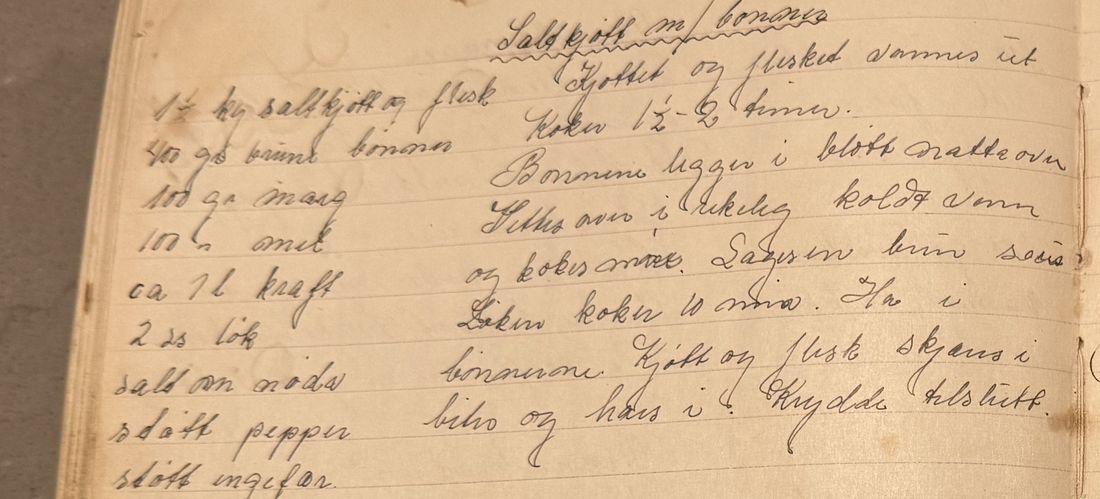 Saltkjøtt m/ bønner
1½ kg saltkjøtt og flesk
400 gr brune bønner
100 gr marg
100 " mel
ca 1 l kraft
2 ss løk
salt om nødv
støtt pepper
støtt ingefær.
Kjøttet og flesket vannes ut
Koker 1½-2 timer.
Bønnene ligger i bløtt natta over
Settes over i rikelig koldt vann
og kokes møre. Lages en brun saus
Løken koker 10 min. Ha i
bønnerne. Kjøtt og flesk skjæres i
biter og haes i. Krydde tilslutt.